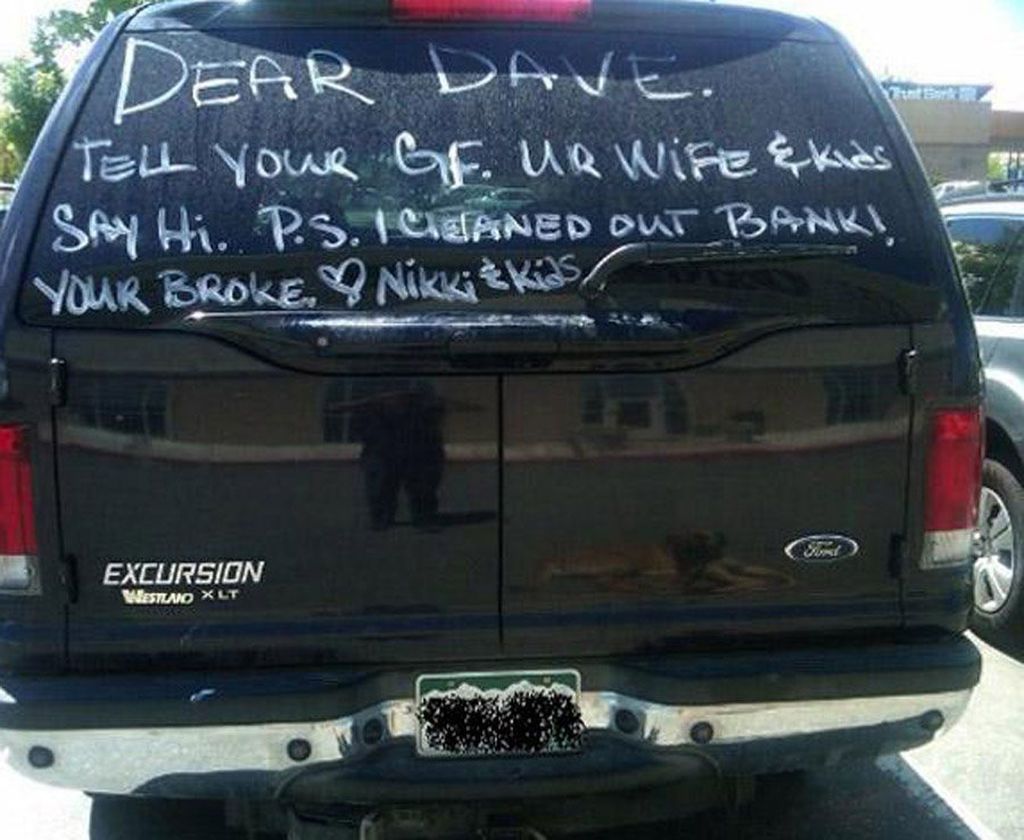 DEAR DAVE.
TELL YOUR GF. UR WIFE & Kids
SAY Hi. P.S. I CLEANED OUT BANK!
YOUR BROKE. ♡ Nikki & Kids
Trust Bank
EXCURSION
WESTLAND XLT
Ford